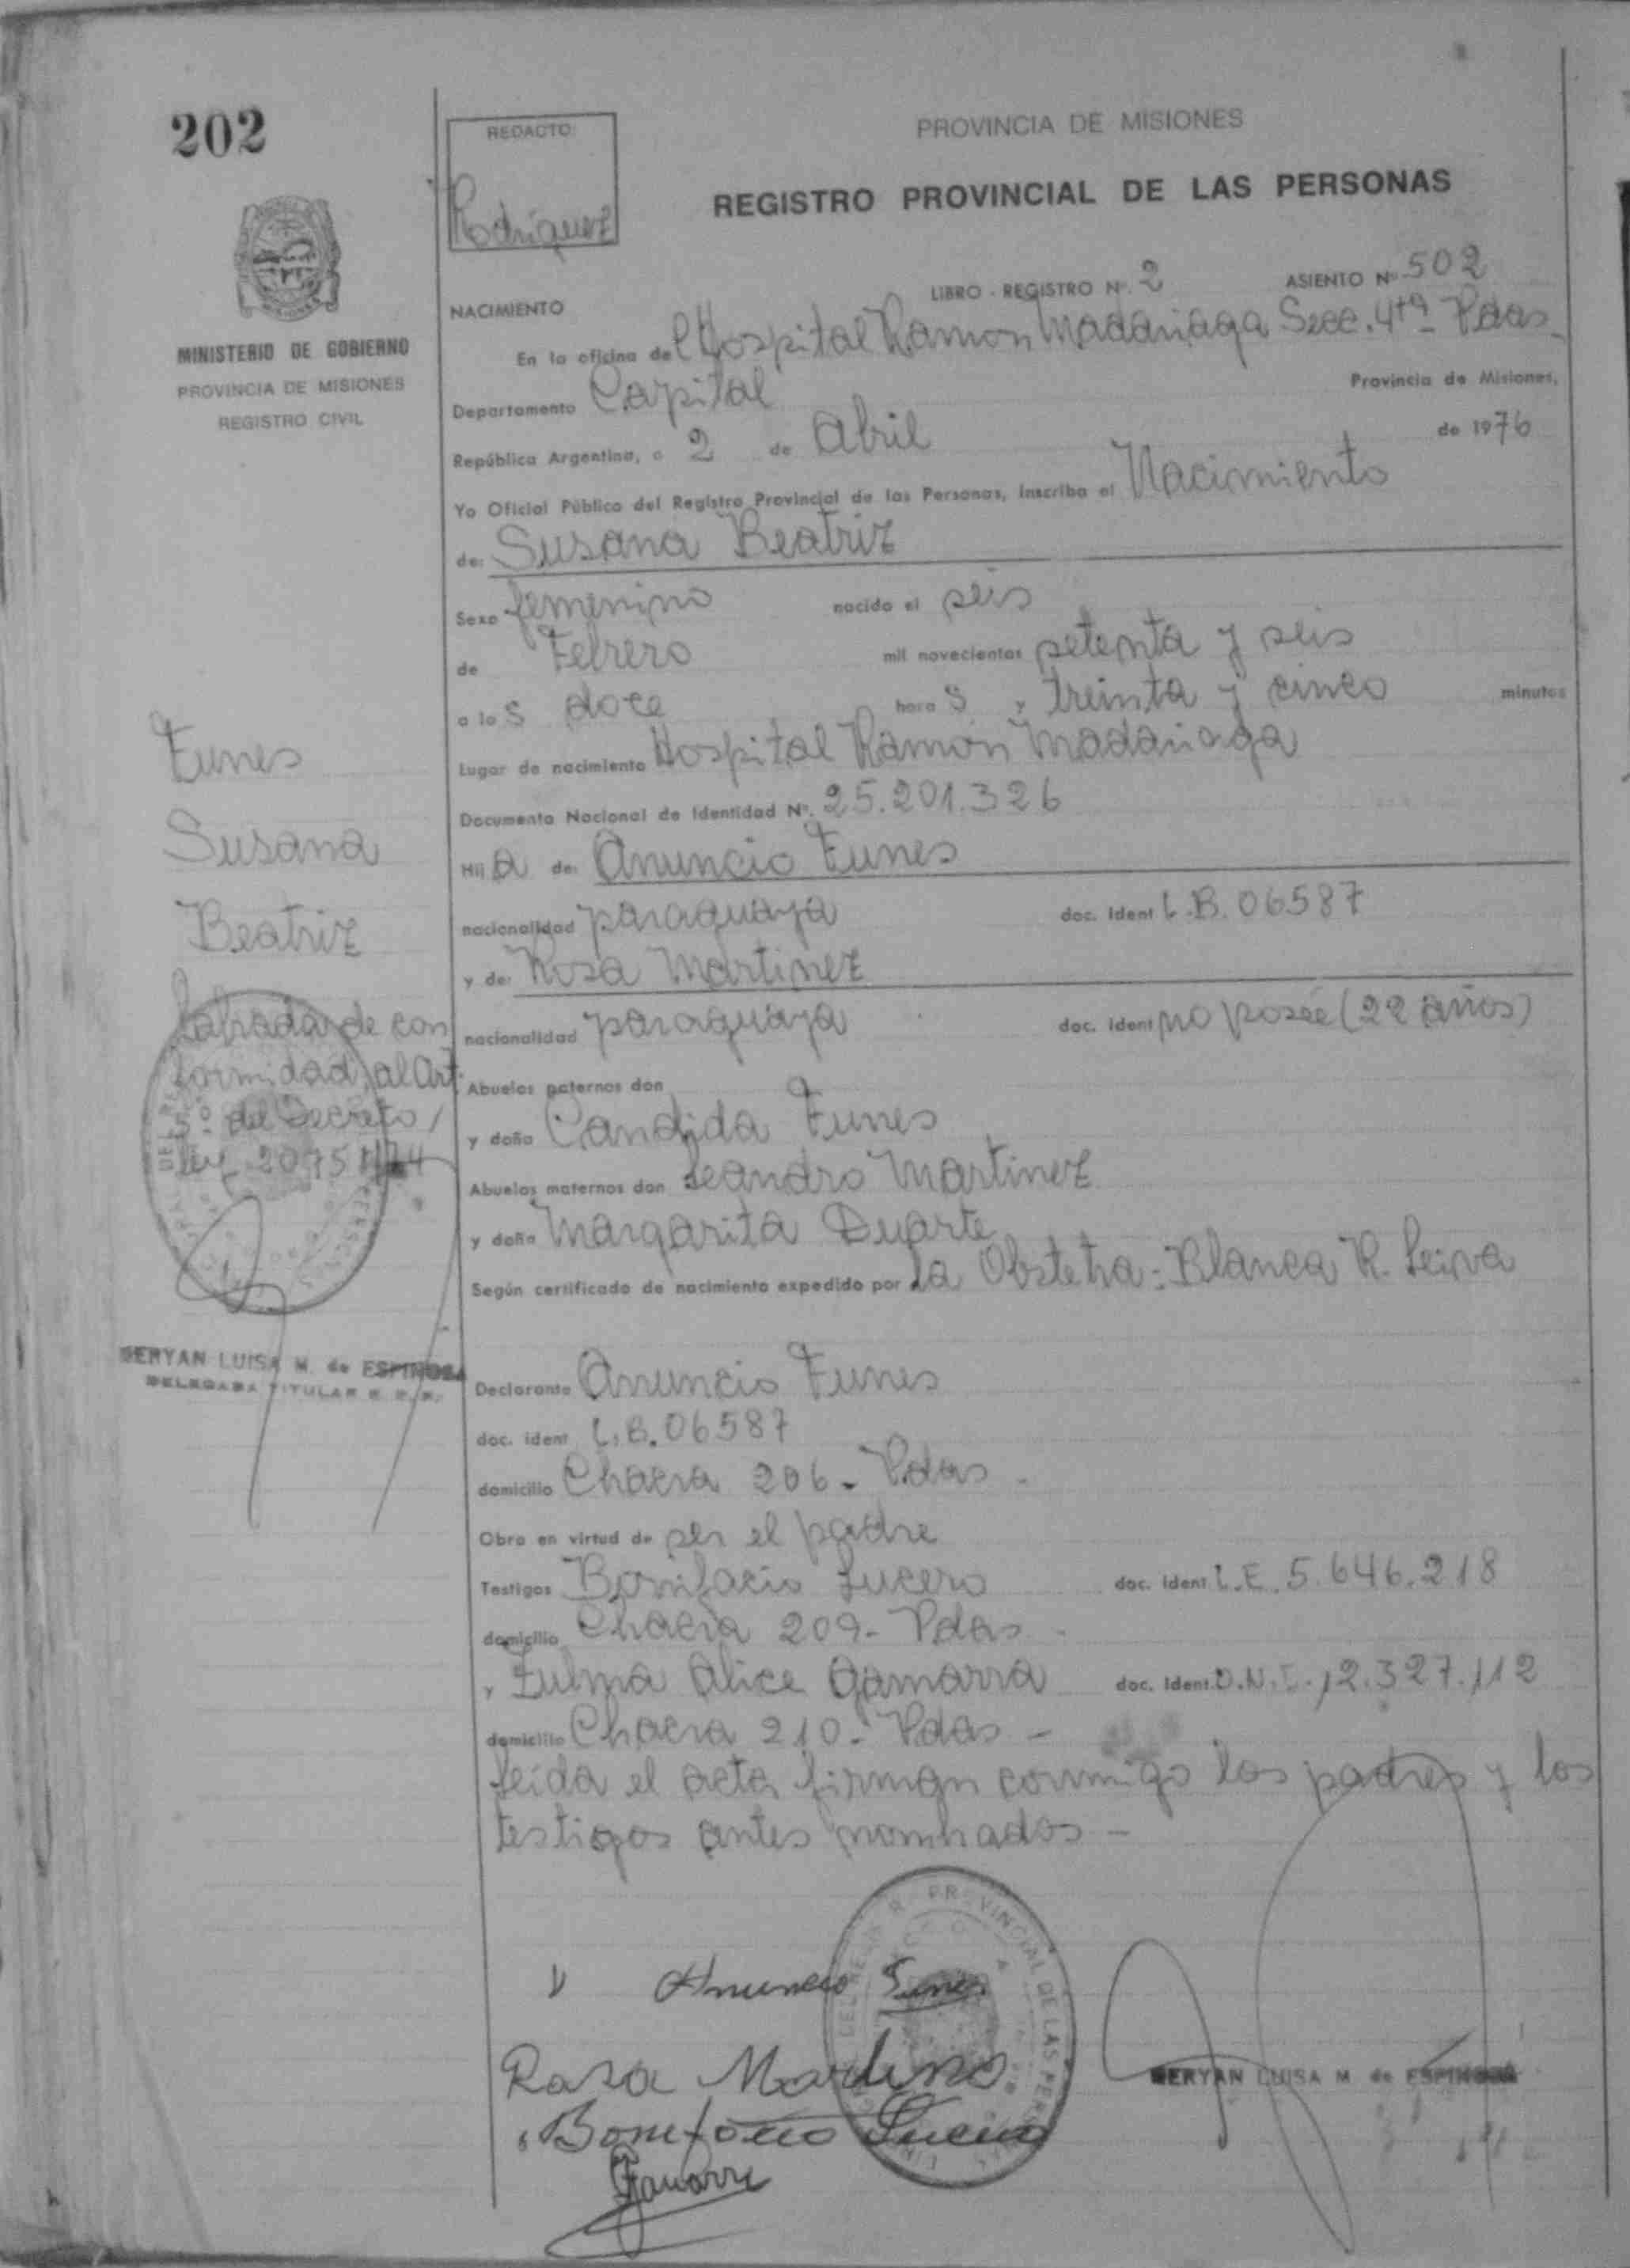 202
REDACTO:
Rodriguez
PROVINCIA DE MISIONES
REGISTRO PROVINCIAL DE LAS PERSONAS
MINISTERIO DE GOBIERNO
PROVINCIA DE MISIONES
REGISTRO CIVIL
LIBRO - REGISTRO Nº. 2 ASIENTO Nº 502
NACIMIENTO
En la oficina del Hospital Ramon Madariaga Secc. 4ta - Pdas -
Departamento Capital Provincia de Misiones,
República Argentina, a 2 de Abril de 1976
Yo Oficial Público del Registro Provincial de las Personas, inscribo el Nacimiento
de: Susana Beatriz
Sexo femenino nacido el seis
de Febrero mil novecientos setenta y seis
a las doce horas y treinta y cinco minutos
Lugar de nacimiento Hospital Ramon Madariaga
Documento Nacional de Identidad Nº. 25.201.326
Hija de: Anuncio Funes
nacionalidad paraguaya doc. ident L.B. 06587
y de: Rosa Martinez
nacionalidad paraguaya doc. ident no posée (22 años)
Abuelos paternos don
y doña Candida Funes
Abuelos maternos don Leandro Martinez
y doña Margarita Duarte
Según certificado de nacimiento expedido por la Obstetra: Blanca R. Leiva
Declarante Anuncio Funes
doc. ident L.B. 06587
domicilio Chacra 206 - Pdas -
Obra en virtud de ser el padre
Testigos Bonifacio Lucero doc. ident L.E. 5.646.218
domicilio Chacra 209 - Pdas -
y Zulma Alice Gamarra doc. ident D.N.I. 12.327.112
domicilio Chacra 210 - Pdas -
Leida el acta firman conmigo los padres y los
testigos antes nombrados -
Funes
Susana
Beatriz
Labrada de con
formidad al Art.
5º del Decreto /
Ley 20751/74
SERYAN LUISA M. de ESPINOSA
DELEGADA TITULAR R. P. P.
Anuncio Funes
Rosa Martines
Bonifacio Lucero
Gamarra
PROVINCIAL DE LAS PERSONAS
SERYAN LUISA M. de ESPINOSA